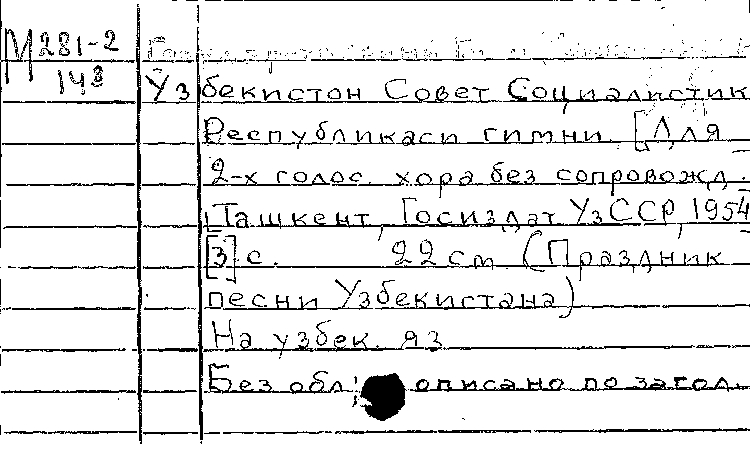 М 281-2
143
Ўзбекистон Совет Социалистик
Республикаси гимни. [Для
2-х голос. хора без сопровожд.
Ташкент, Госиздат УзССР, 1954
[3] с. 22 см (Праздник
песни Узбекистана)
На узбек. яз
Без обл; описано по загол.